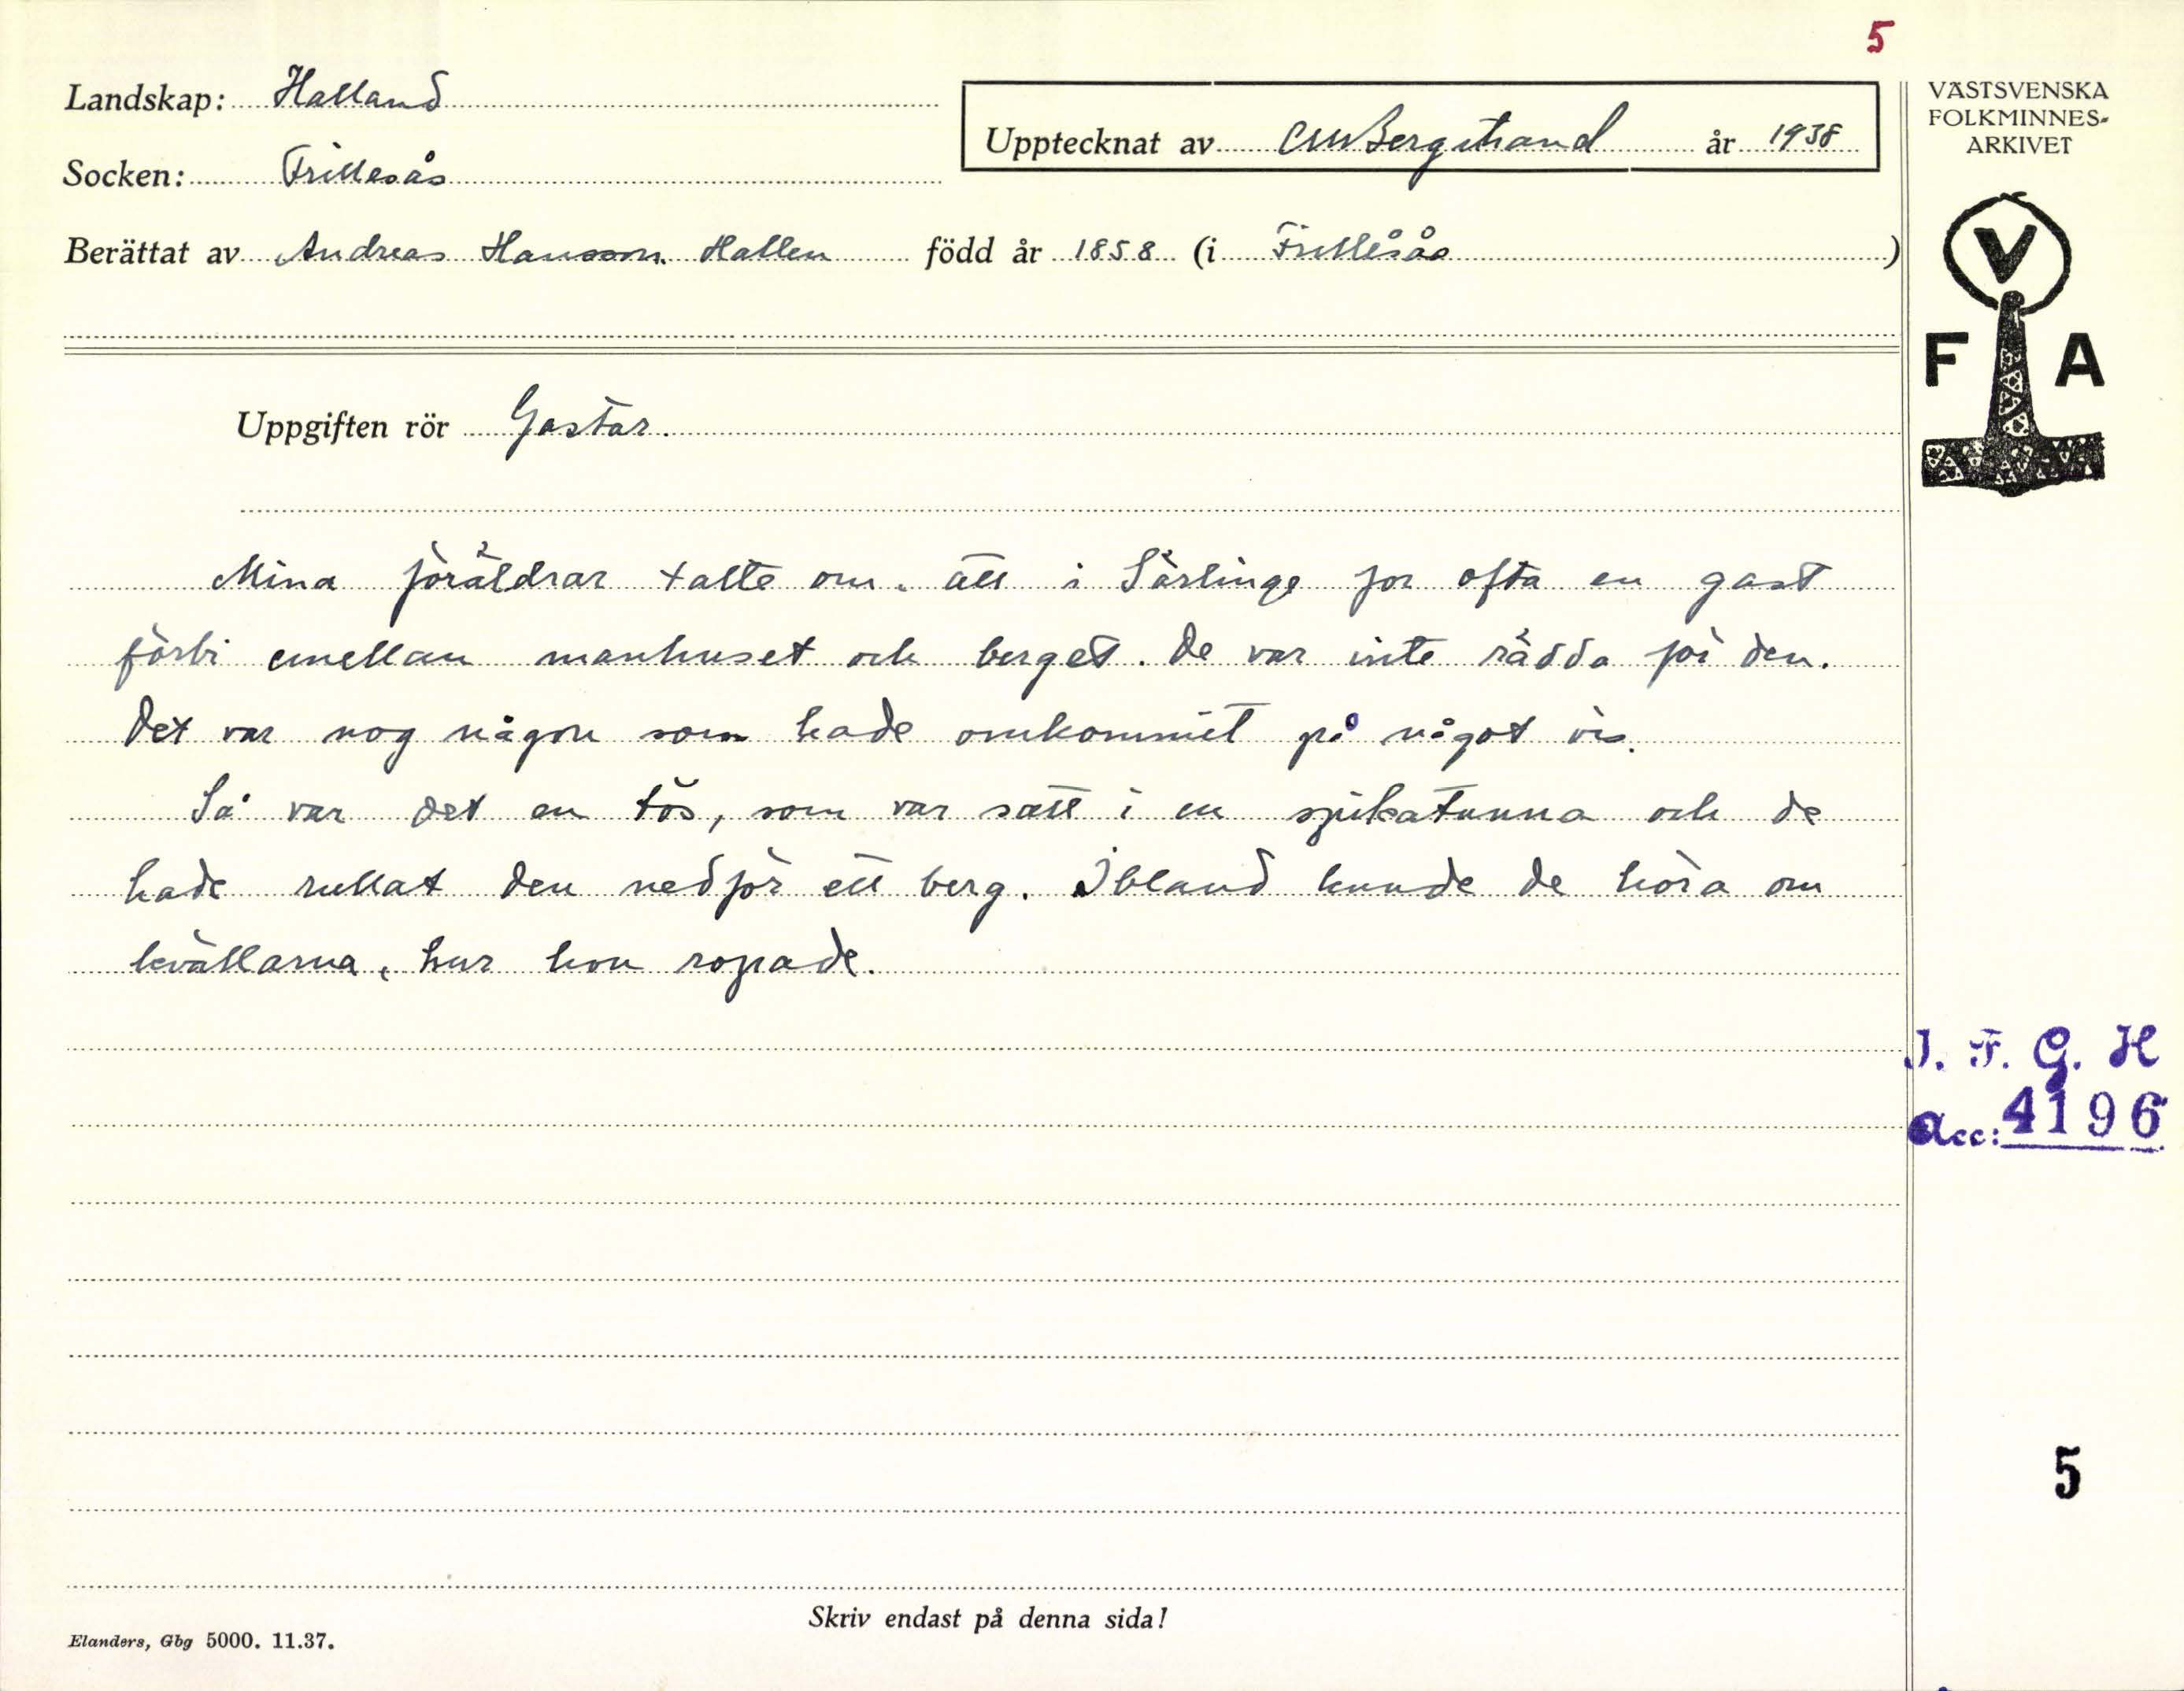 5
Landskap: Halland
Socken: Frillesås
Upptecknat av CMBergstrand år 1938
Berättat av Andreas Hansson. Hallen född år 1858 (i Frillesås)
Uppgiften rör Gastar.
Mina föräldrar talte om, att i Särlinge for ofta en gast
förbi emellan manhuset och berget. De var inte rädda för den.
Det var nog någon som hade omkommit på något vis.
Så var det en tös, som var satt i en spikatunna och de
hade rullat den nedför ett berg. Ibland kunde de höra om
kvällarna, hur hon ropade.
VÄSTSVENSKA
FOLKMINNES-
ARKIVET
V
F A
I. F. G. H
Acc: 4196
5
Skriv endast på denna sida!
Elanders, Gbg 5000. 11.37.